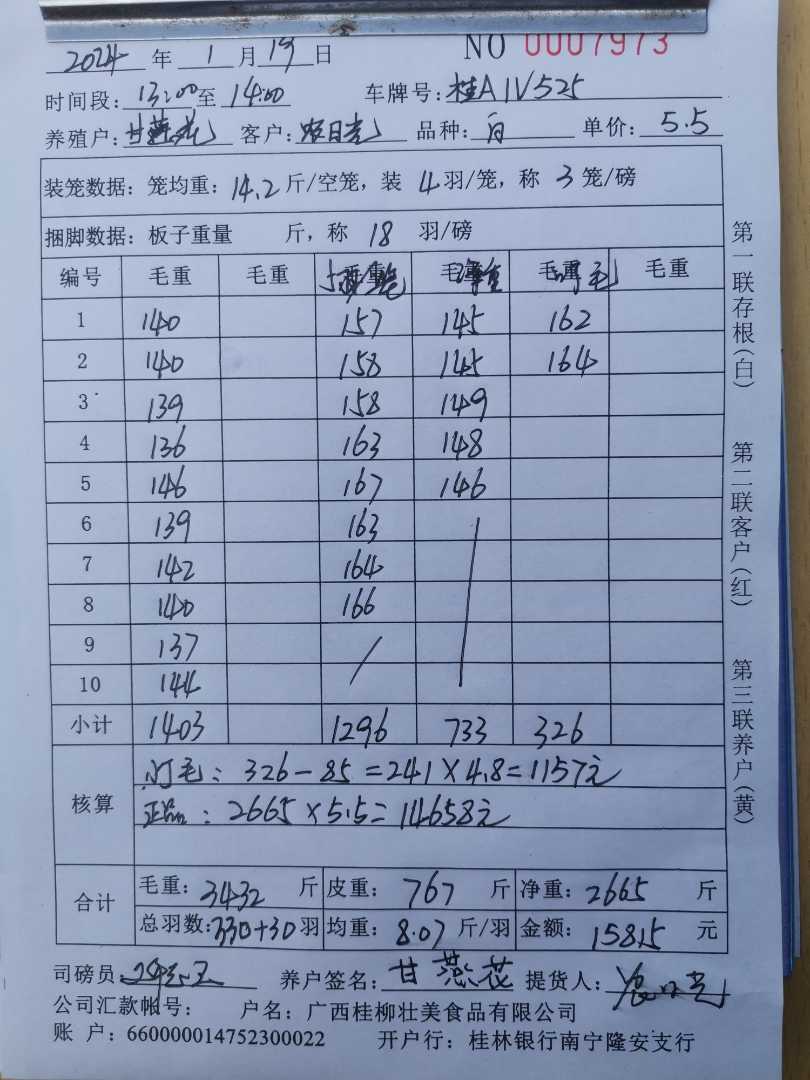 2024 年 1 月 19 日 NO 0007973
时间段: 13:00 至 14:00 车牌号: 桂A1V525
养殖户: 甘燕花 客户: 农日光 品种: 白 单价: 5.5
装笼数据: 笼均重: 14.2 斤/空笼, 装 4 羽/笼, 称 3 笼/磅
捆脚数据: 板子重量 斤, 称 18 羽/磅
编号 毛重 毛重 毛重 毛重 毛重 毛重
1 140 157 145 162
2 140 158 145 164
3 139 158 149
4 136 163 148
5 146 167 146
6 139 163
7 142 164
8 140 166
9 137
10 144
小计 1403 1296 733 326
核算
小毛: 326-85=241×4.8=1157元
正品: 2665×5.5=14658元
合计 毛重: 3432 斤 皮重: 767 斤 净重: 2665 斤
总羽数: 330+30 羽 均重: 8.07 斤/羽 金额: 15815 元
司磅员 养户签名: 甘燕花 提货人: 农日光
公司汇款帐号: 户名: 广西桂柳壮美食品有限公司
账 户: 660000014752300022 开户行: 桂林银行南宁隆安支行
第一联存根(白) 第二联客户(红) 第三联养户(黄)